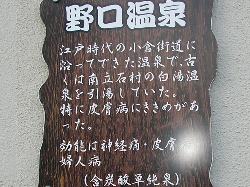 野口温泉
江戸時代の小倉街道に
沿ってできた温泉で、古
くは南立石村の白湯温
泉を引湯していた。
特に皮膚病にききめがあ
った。
効能は神経痛・皮膚
婦人病
(含炭酸単純泉)